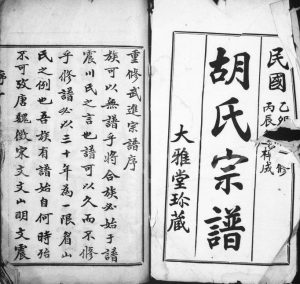 民國乙卯修
丙辰
胡氏宗譜
大雅堂珍藏
重修武進宗譜序
族可以無譜乎將合族必始于譜
震川氏之言也譜可以久而不修
乎修譜必以三十年為一限眉山
民之例也吾族有譜始自何時殆
不可攷唐魏徵宋文文山明文震
序一